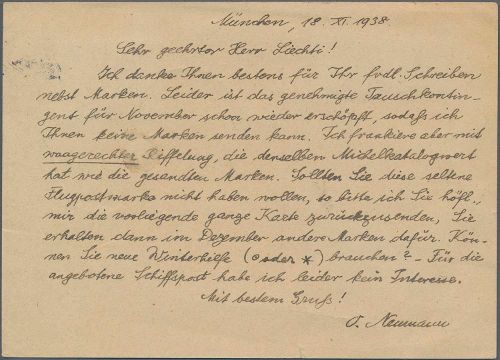 München, 18. XI. 1938.
Sehr geehrter Herr Liechti!
Ich danke Ihnen bestens für Ihr frdl. Schreiben
nebst Marken. Leider ist das genehmigte Tauschkontin-
gent für November schon wieder erschöpft, sodaß ich
Ihnen keine Marken senden kann. Ich frankiere aber mit
waagerechter Riffelung, die denselben Michelkatalogwert
hat wie die gesandten Marken. Sollten Sie diese seltene
Flugpostmarke nicht haben wollen, so bitte ich Sie höfl.,
mir die vorliegende ganze Karte zurückzusenden, Sie
erhalten dann im Dezember andere Marken dafür. Kön-
nen Sie neue Winterhilfe (⊙ oder *) brauchen? - Für die
angebotene Schiffspost habe ich leider kein Interesse.
Mit bestem Gruß!
Neumann